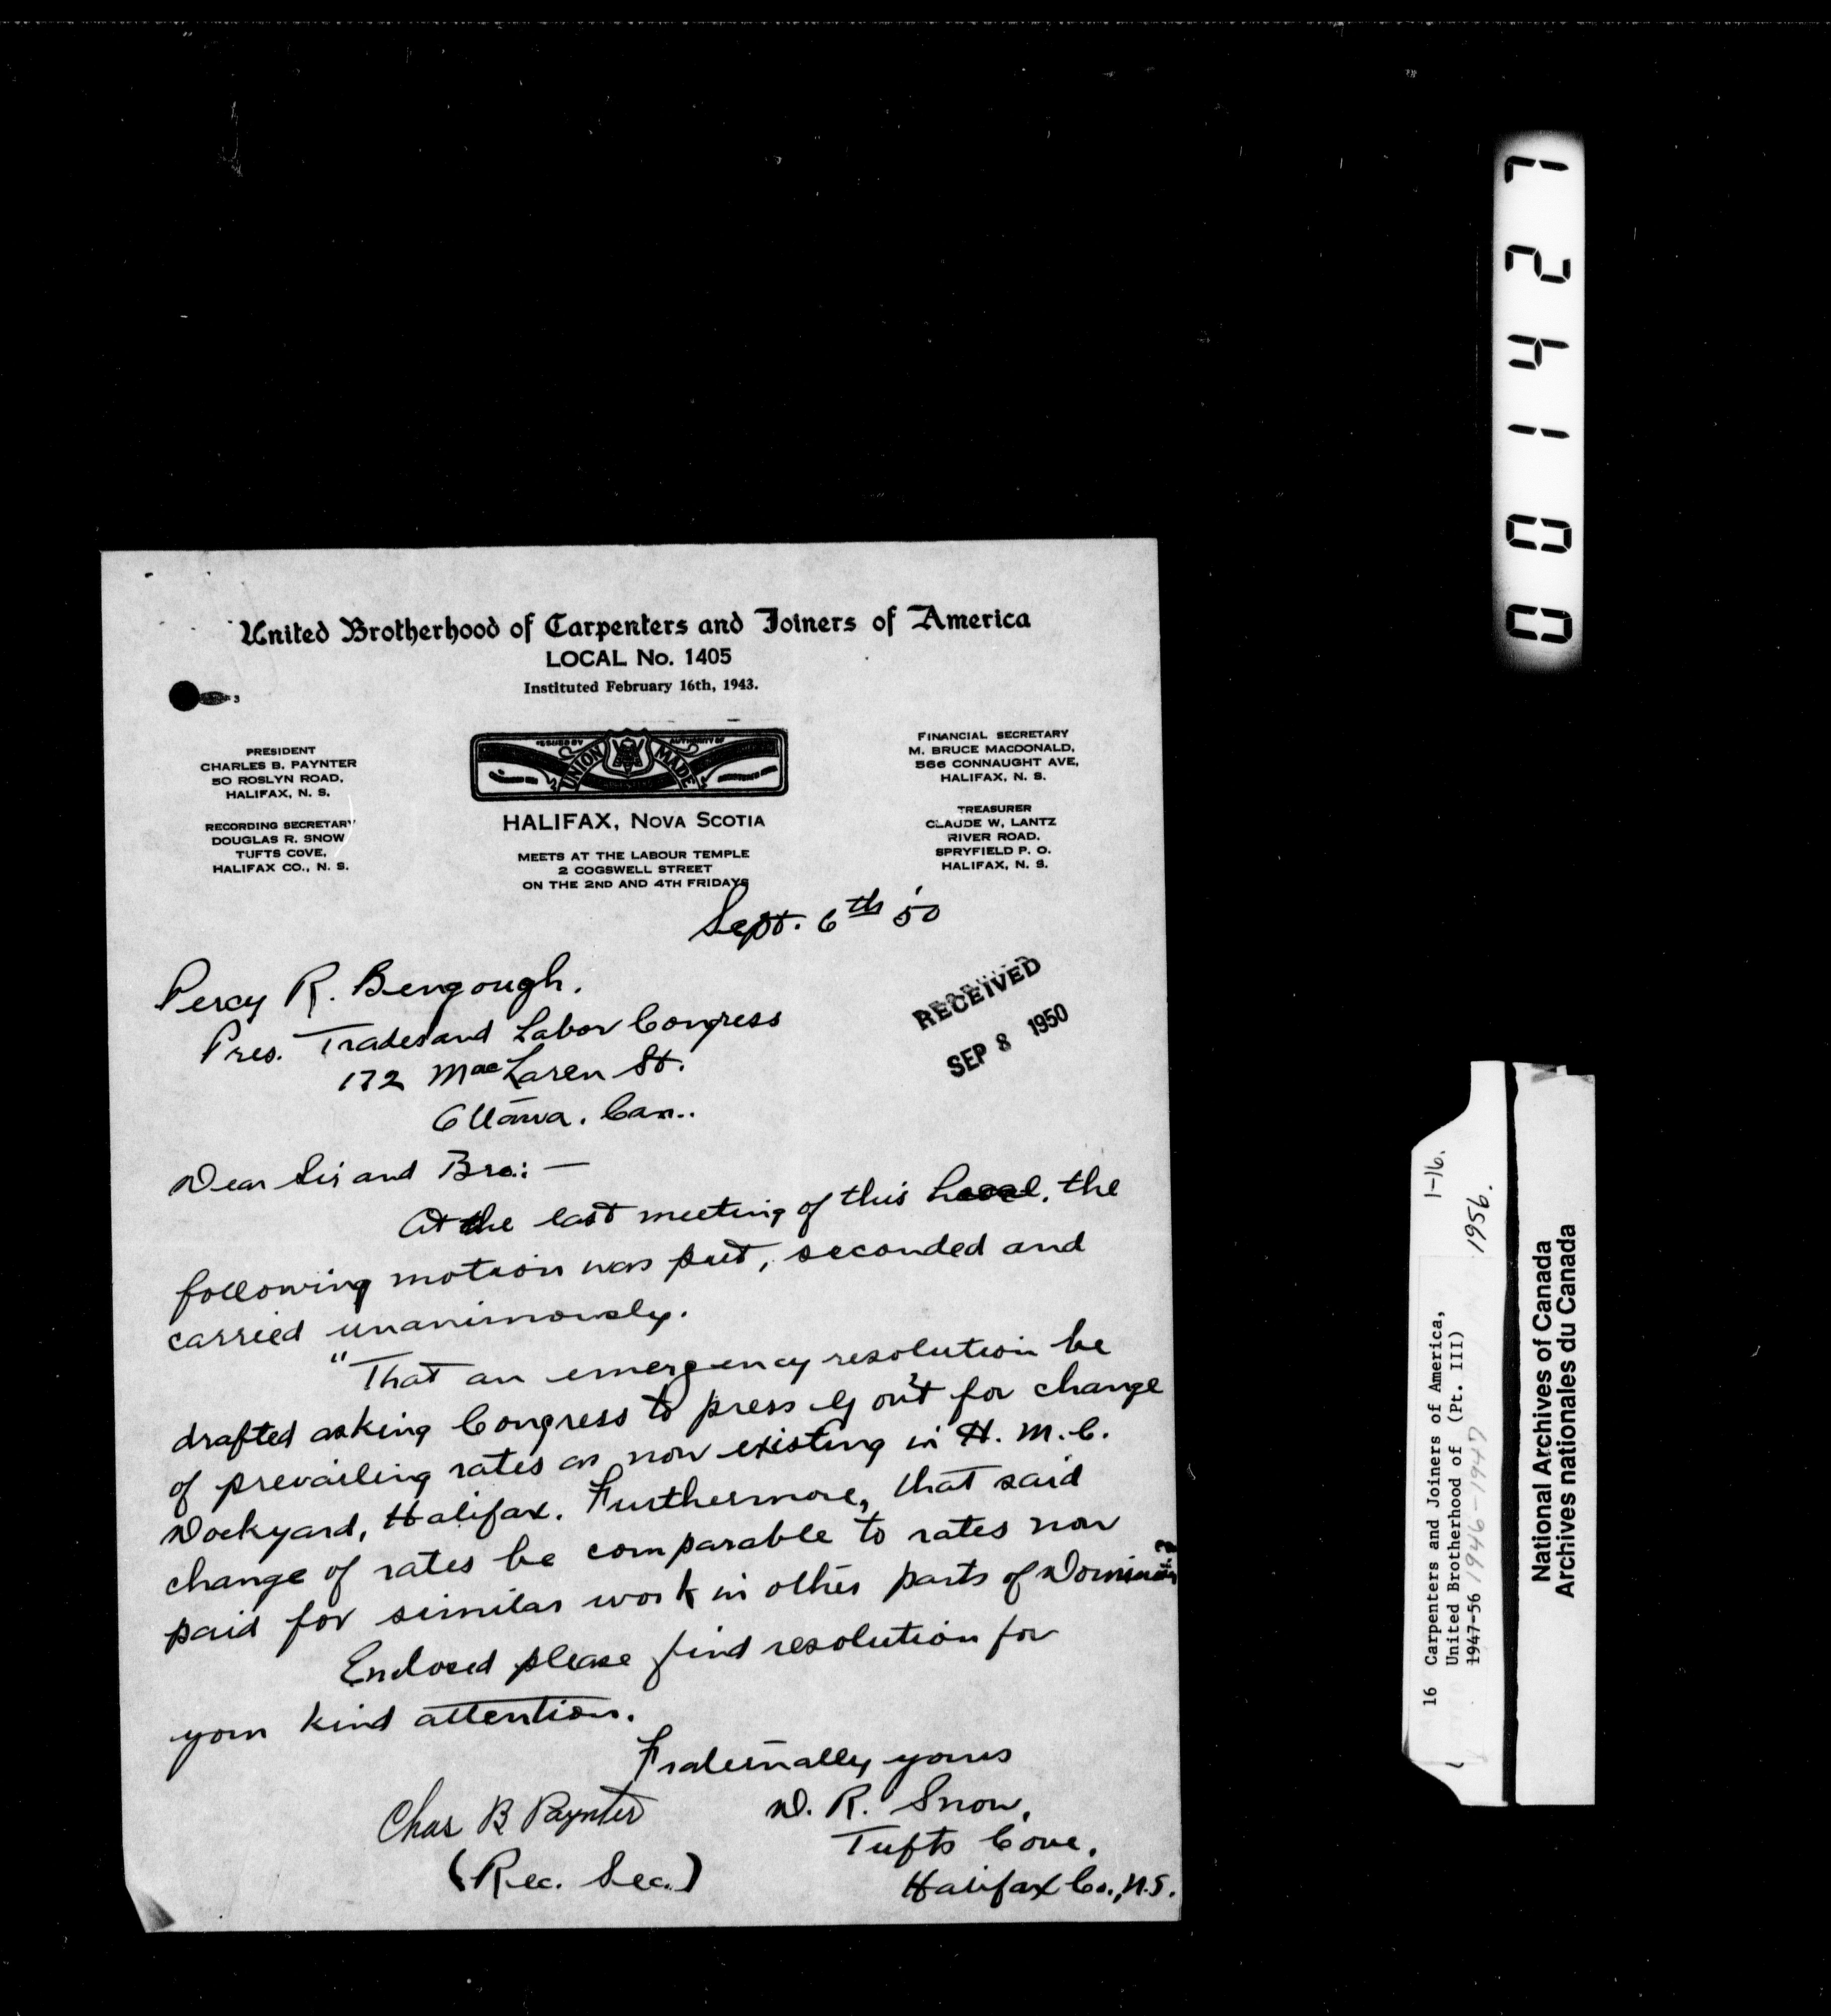 United Brotherhood of Carpenters and Joiners of America
LOCAL No. 1405
Instituted February 16th, 1943.
PRESIDENT
CHARLES B. PAYNTER
50 ROSLYN ROAD,
HALIFAX, N. S.
RECORDING SECRETARY
DOUGLAS R. SNOW
TUFTS COVE,
HALIFAX CO., N. S.
ISSUED BY AUTHORITY OF
UNION MADE
HALIFAX, NOVA SCOTIA
MEETS AT THE LABOUR TEMPLE
2 COGSWELL STREET
ON THE 2ND AND 4TH FRIDAYS
FINANCIAL SECRETARY
M. BRUCE MACDONALD,
566 CONNAUGHT AVE,
HALIFAX, N. S.
TREASURER
CLAUDE W. LANTZ
RIVER ROAD,
SPRYFIELD P. O.
HALIFAX, N. S.
Sept. 6th '50
Percy R. Bengough.
Pres. Trades and Labor Congress
172 MacLaren St.
Ottawa. Can..
RECEIVED
SEP 8 1950
Dear Sir and Bro.: —
At the last meeting of this Local, the
following motion was put, seconded and
carried unanimously.
"That an emergency resolution be
drafted asking Congress to press out for change
of prevailing rates as now existing in H. M. C.
Dockyard, Halifax. Furthermore, that said
change of rates be comparable to rates now
paid for similar work in other parts of Dominion"
Enclosed please find resolution for
your kind attention.
Fraternally yours
Chas B Paynter
D. R. Snow,
Tufts Cove,
(Rec. Sec.)
Halifax Co., N.S.
001427
16 Carpenters and Joiners of America, 1-16.
United Brotherhood of (Pt. III)
1947-56 1946-1947 1956.
National Archives of Canada
Archives nationales du Canada